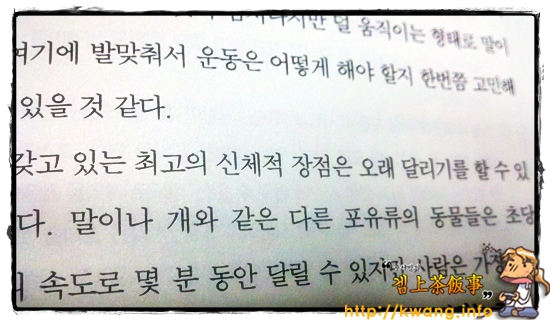 덜 움직이는 형태로 말이
여기에 발맞춰서 운동은 어떻게 해야 할지 한번쯤 고민해
있을 것 같다.
갖고 있는 최고의 신체적 장점은 오래 달리기를 할 수 있
다. 말이나 개와 같은 다른 포유류의 동물들은 초당
속도로 몇 분 동안 달릴 수 있지만 사람은
習上茶飯事
http://kwang.info